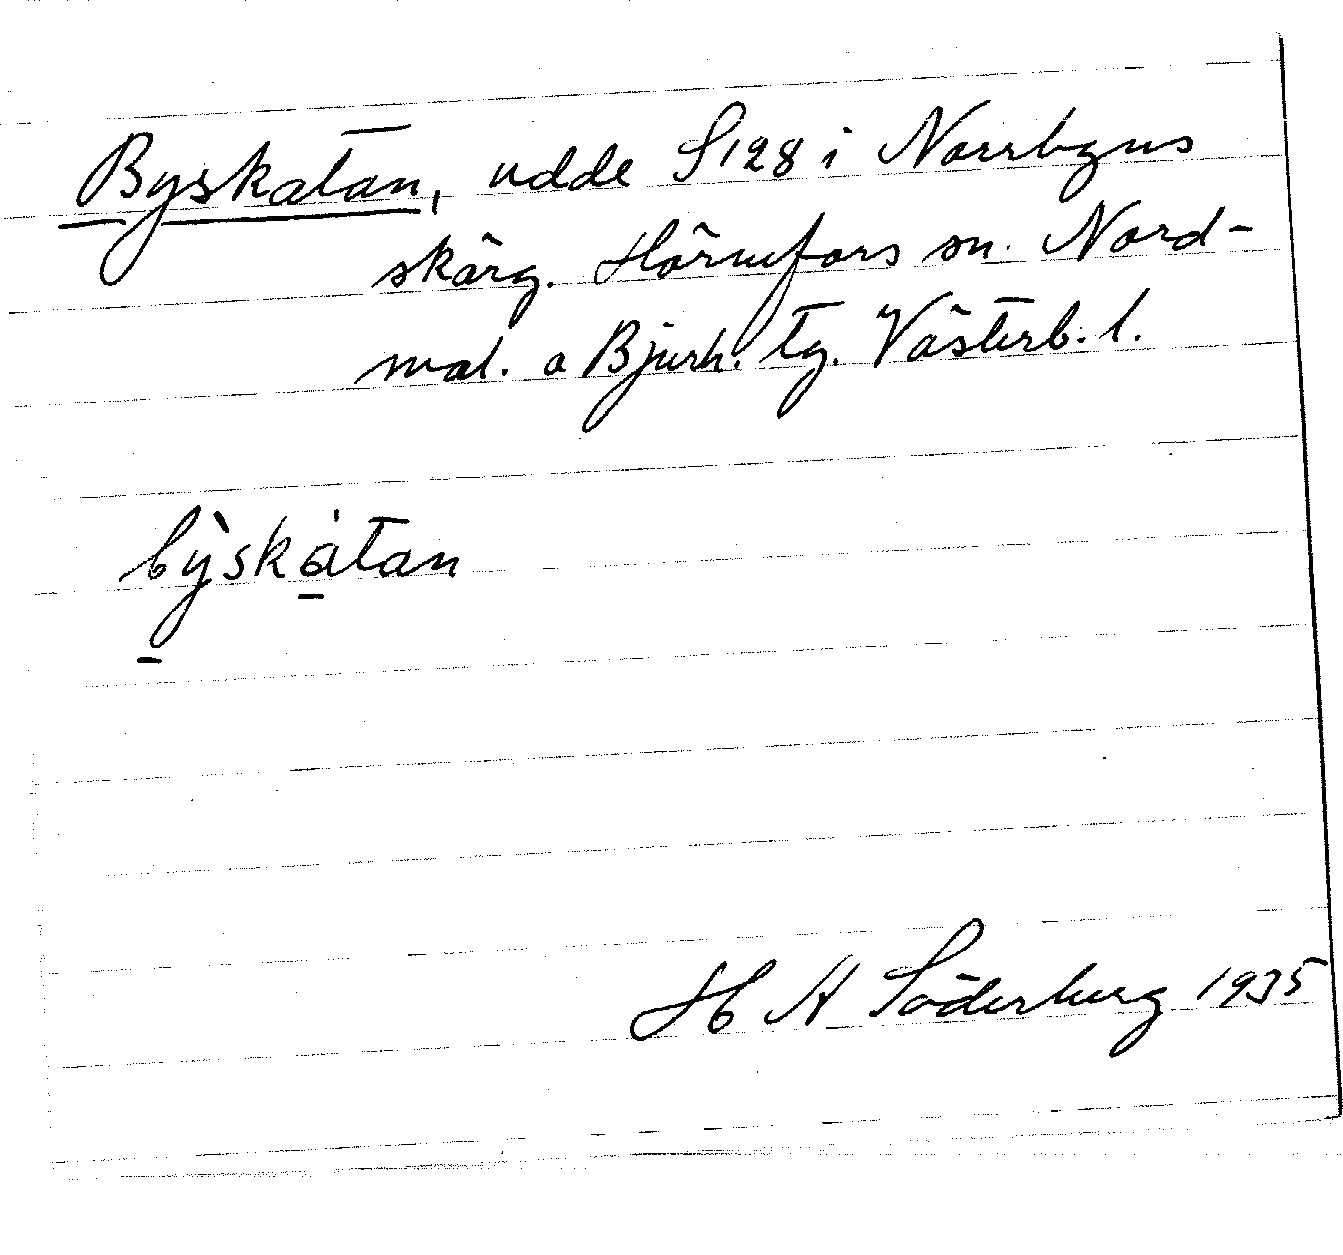 Byskatan, udde S128 i Norrbyns
skärg. Hörnefors sn. Nord-
mal. o Bjurh. tg. Västerb. l.
bỳskátan
H A Söderberg 1935